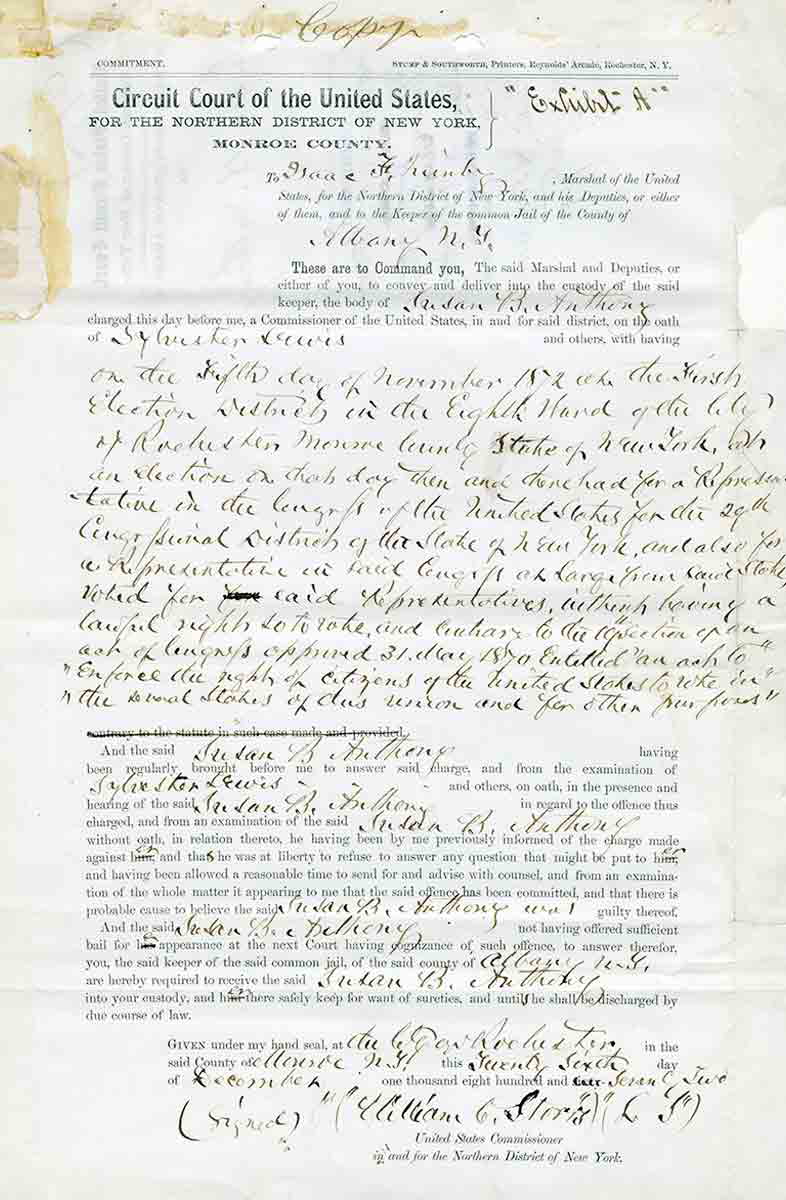 Copy
COMMITMENT. STUMP & SOUTHWORTH, Printers, Reynolds' Arcade, Rochester, N. Y.
Circuit Court of the United States,
FOR THE NORTHERN DISTRICT OF NEW YORK,
MONROE COUNTY.
"Exhibit A"
To Isaac F. Quinby, Marshal of the United
States, for the Northern District of New York, and his Deputies, or either
of them, and to the Keeper of the common Jail of the County of
Albany N.Y.
These are to Command you, The said Marshal and Deputies, or
either of you, to convey and deliver into the custody of the said
keeper, the body of Susan B. Anthony
charged this day before me, a Commissioner of the United States, in and for said district, on the oath
of Sylvester Lewis and others, with having
on the Fifth day of November 1872 at the First
Election District in the Eighth Ward of the City
of Rochester Monroe County State of New York, at
an election on that day then and there had for a Represen
tative in the Congress of the United States for the 29th
Congressional District of the State of New York, and also for
a Representative in said Congress at Large from said State,
voted for said Representatives, without having a
lawful right so to vote, and contrary to the 19 section of an
act of Congress approved 31. May 1870, Entitled "an act to"
"Enforce the right of citizens of the United States to vote in"
"the several States of this union and for other purposes"
contrary to the statute in such case made and provided.
And the said Susan B Anthony having
been regularly brought before me to answer said charge, and from the examination of
Sylvester Lewis and others, on oath, in the presence and
hearing of the said Susan B. Anthony in regard to the offence thus
charged, and from an examination of the said Susan B. Anthony
without oath, in relation thereto, he having been by me previously informed of the charge made
against her, and that she was at liberty to refuse to answer any question that might be put to her,
and having been allowed a reasonable time to send for and advise with counsel, and from an examina-
tion of the whole matter it appearing to me that the said offence has been committed, and that there is
probable cause to believe the said Susan B. Anthony was guilty thereof.
And the said Susan B. Anthony not having offered sufficient
bail for her appearance at the next Court having cognizance of such offence, to answer therefor,
you, the said keeper of the said common jail, of the said county of Albany N.Y.
are hereby required to receive the said Susan B. Anthony
into your custody, and her there safely keep for want of sureties, and until she shall be discharged by
due course of law.
GIVEN under my hand seal, at the City of Rochester in the
said County of Monroe N.Y. this Twenty Sixth day
of December one thousand eight hundred and Seventy Two
(Signed) "(William C. Storrs)" (L S")
United States Commissioner
in and for the Northern District of New York.